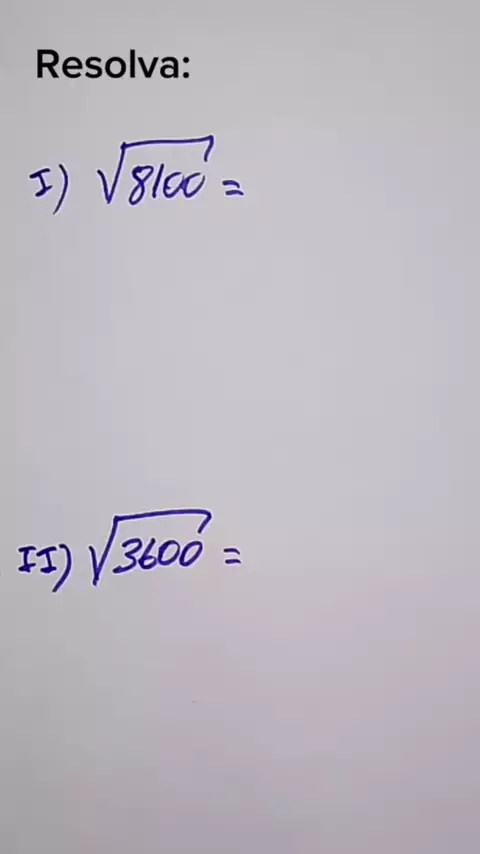 Resolva:
I) √8100 =
II) √3600 =